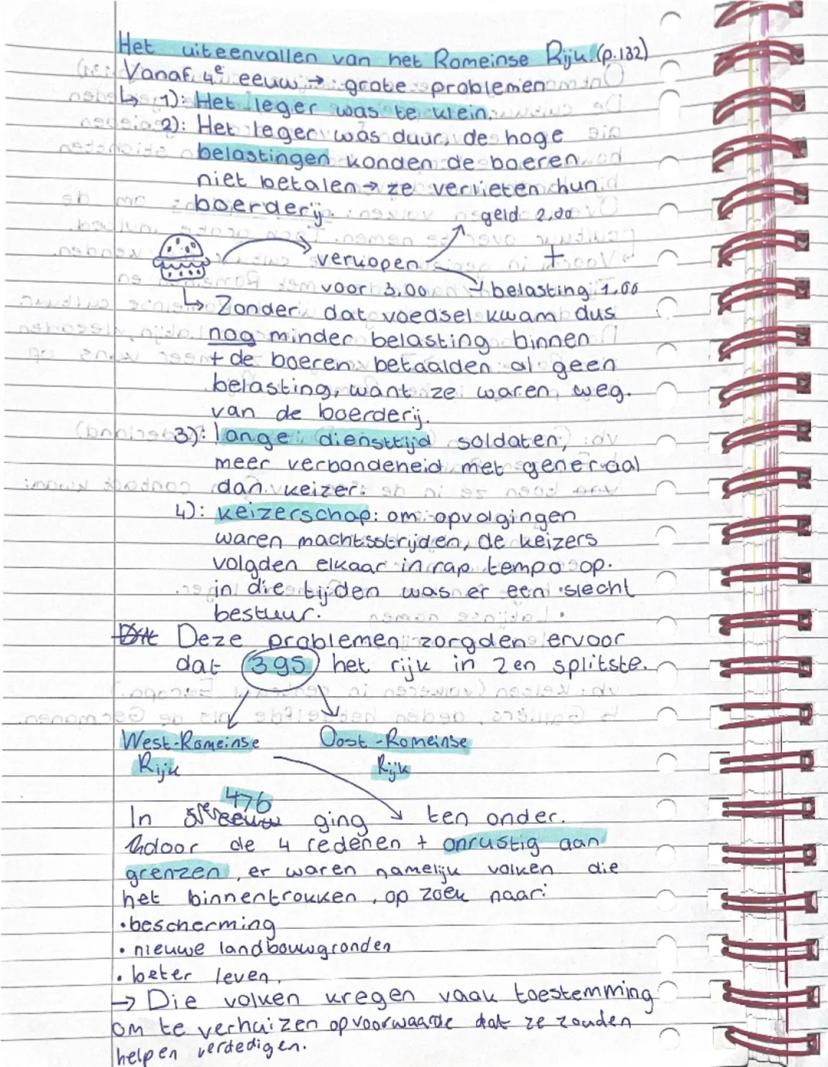 Het uiteenvallen van het Romeinse Rijk. (p.132)
Vanaf 4e eeuw → grote problemen
↳ 1): Het leger was te klein.
2): Het leger was duur, de hoge
belastingen konden de boeren
niet betalen → ze verlieten hun
boerderij.
geld 2,00
verkopen +
voor 3,00 belasting 1,00
↳ Zonder dat voedsel kwam dus
nog minder belasting binnen
+ de boeren betaalden al geen
belasting, want ze waren weg.
van de boerderij.
3): lange diensttijd soldaten,
meer verbondeneid met generaal
dan keizer.
4): keizerschap: om opvolgingen
waren machtsstrijden, de keizers
volgden elkaar in rap tempo op.
in die tijden was er een slecht
bestuur.
Deze problemen zorgden ervoor
dat 395 het rijk in 2en splitste.
West-Romeinse Oost-Romeinse
Rijk Rijk
476
In 5e eeuw ging → ten onder.
door de 4 redenen + onrustig aan
grenzen, er waren namelijk volken die
het binnentrokken, op zoek naar:
• bescherming
• nieuwe landbouwgronden
• beter leven.
→ Die volken kregen vaak toestemming
om te verhuizen op voorwaarde dat ze zouden
helpen verdedigen.